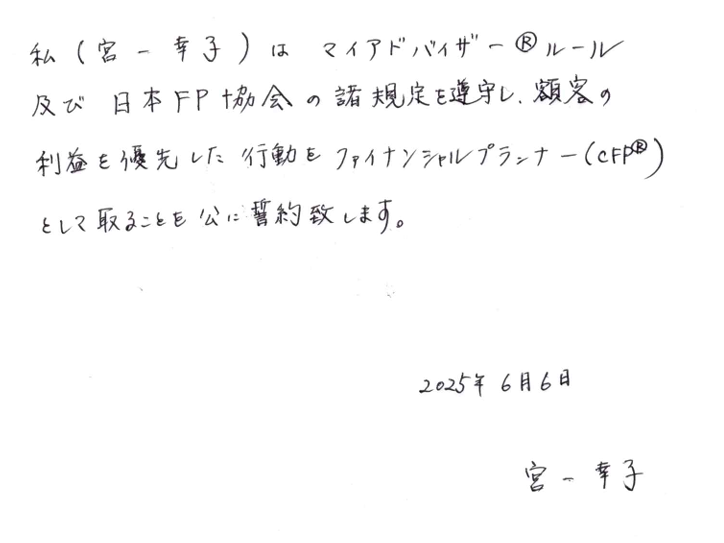 私(宮一幸子)は マイアドバイザー®ルール
及び 日本FP協会の諸規定を遵守し、顧客の
利益を優先した行動をファイナンシャルプランナー(CFP®)
として取ることを公に誓約致します。
2025年6月6日
宮一幸子